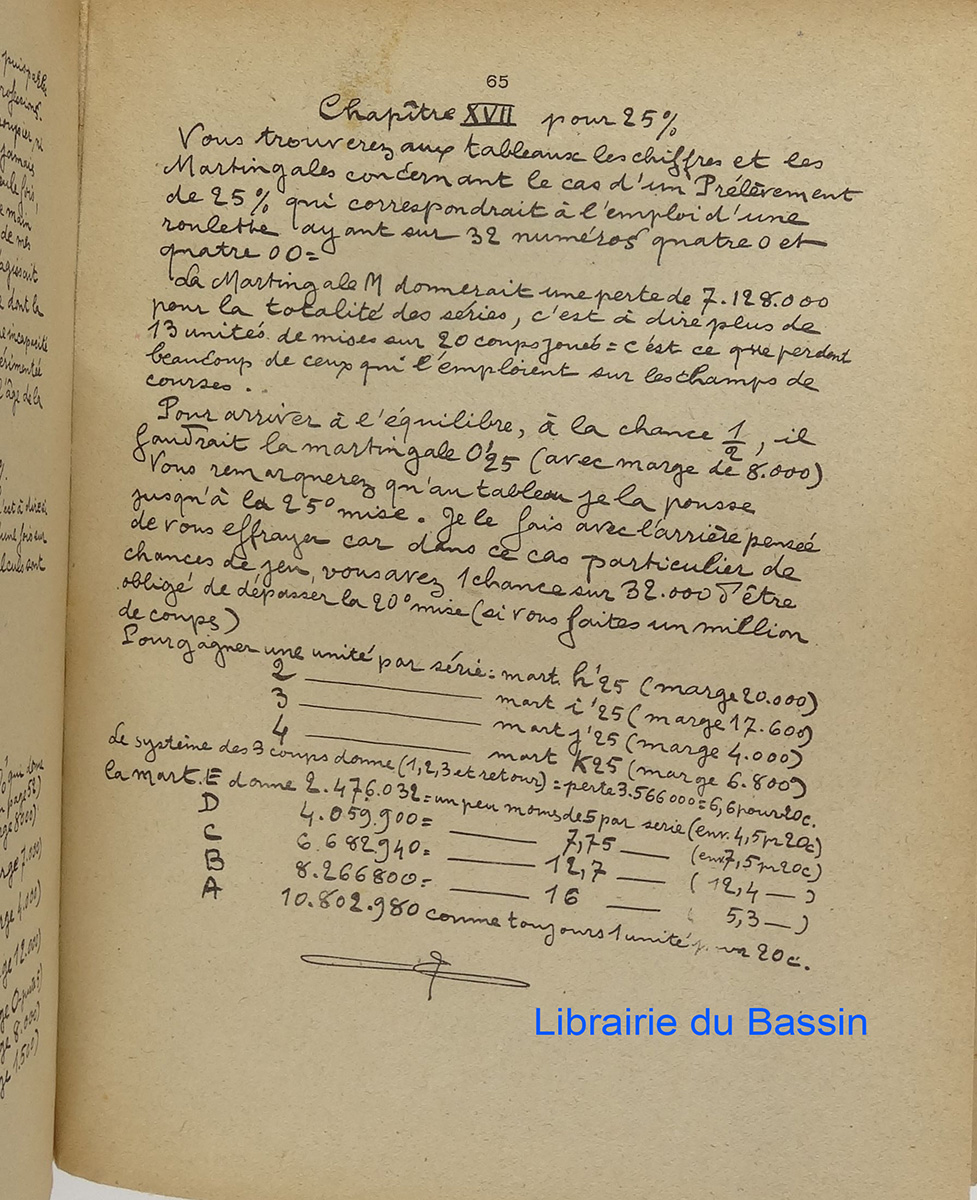 65
Chapître XVII pour 25%
Vous trouverez aux tableaux les chiffres et les
Martingales concernant le cas d'un Prélèvement
de 25% qui correspondrait à l'emploi d'une
roulette ayant sur 32 numéros quatre 0 et
quatre 00=
La Martingale M donnerait une perte de 7.128.000
pour la totalité des séries, c'est à dire plus de
13 unités de mises sur 20 coups joués = c'est ce que perdent
beaucoup de ceux qui l'emploient sur les champs de
courses.
Pour arriver à l'équilibre, à la chance 1/2, il
faudrait la martingale 0'25 (avec marge de 8.000)
Vous remarquerez qu'au tableau je la pousse
jusqu'à la 25° mise. Je le fais avec l'arrière pensée
de vous effrayer car dans ce cas particulier de
chances de jeu, vous avez 1 chance sur 32.000 d'être
obligé de dépasser la 20° mise (si vous faites un million
de coups)
Pour gagner une unité par série: mart. h'25 (marge 20.000)
2 ——— mart i'25 (marge 17.600)
3 ——— mart j'25 (marge 4.000)
4 ——— mart K25 (marge 6.800)
Le système des 3 coups donne (1,2,3 et retour) = perte 3.566000 = 6,6 pour 20c.
la mart. E donne 2.476.032 = un peu moins de 5 par série (env. 4,5 pr 20c)
D 4.059.900= ——— 7,75 — (env 7,5 pr 20c)
C 6.682940= ——— 12,7 — (12,4 — )
B 8.266800= ——— 16 — 5,3 — )
A 10.802.980 comme toujours 1 unité pour 20c.
Librairie du Bassin
puisque
jamais
seule fois,
main
de mes
agissait
dont la
incapacité
l'âge de la
c'est à dire si
une fois sur
qui donc
page 52)
marge 7.000)
marge 4.000)
marge 12.000)
8.000)
1.500)